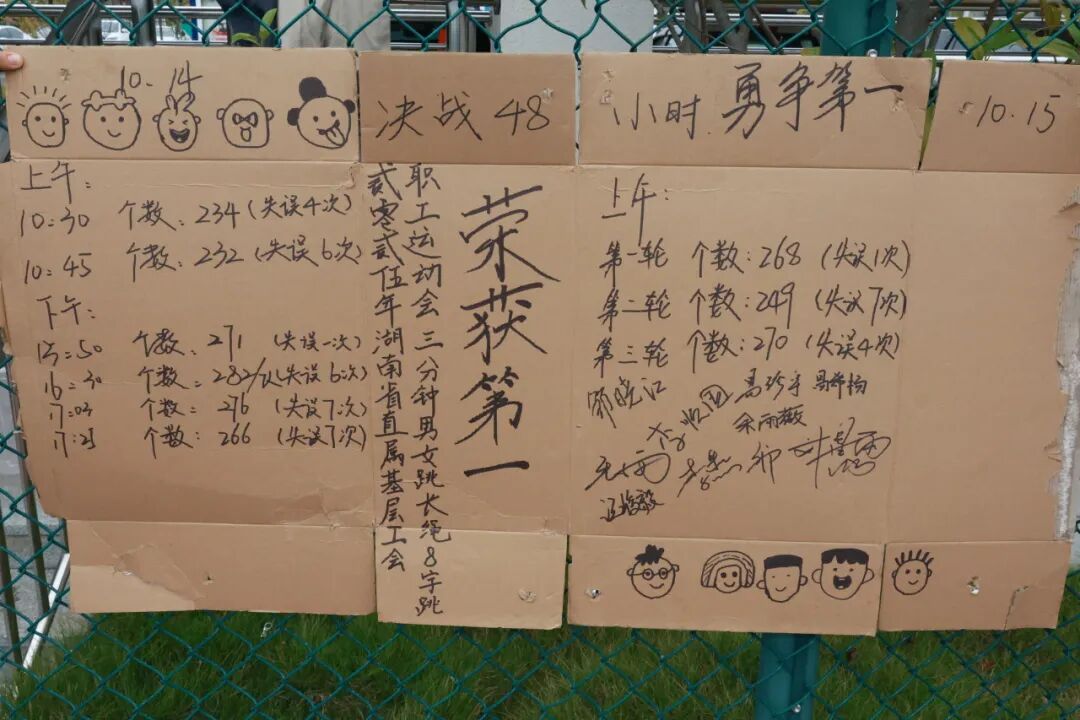 10.14
决战48小时.勇争第一
10.15
上午:
10:30 个数:234(失误4次)
10:45 个数:232(失误6次)
下午:
15:50 个数:271 (失误一次)
16:30 个数:282/ (失误6次)
17:03 个数:276 (失误7次)
17:25 个数:266 (失误7次)
贰零贰伍年湖南省直属基层工会
职工运动会三分钟男女跳长绳8字跳
荣获第一
上午:
第一轮 个数:268 (失误1次)
第二轮 个数:249 (失误7次)
第三轮 个数:270 (失误4次)
余雨薇